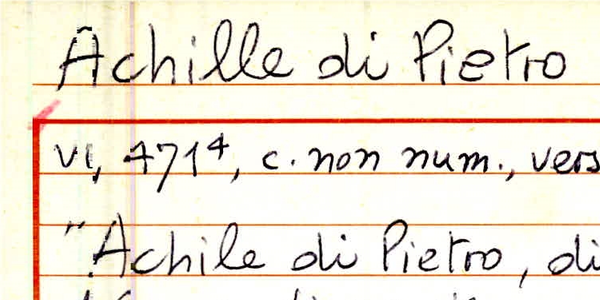 Achille di Pietro
VI, 471⁴, c. non num., vers
"Achile di Pietro, di